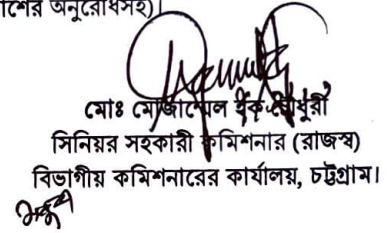 শের অনুরোধসহ)।
মোঃ মোজাম্মেল হক চৌধুরী
সিনিয়র সহকারী কমিশনার (রাজস্ব)
বিভাগীয় কমিশনারের কার্যালয়, চট্টগ্রাম।